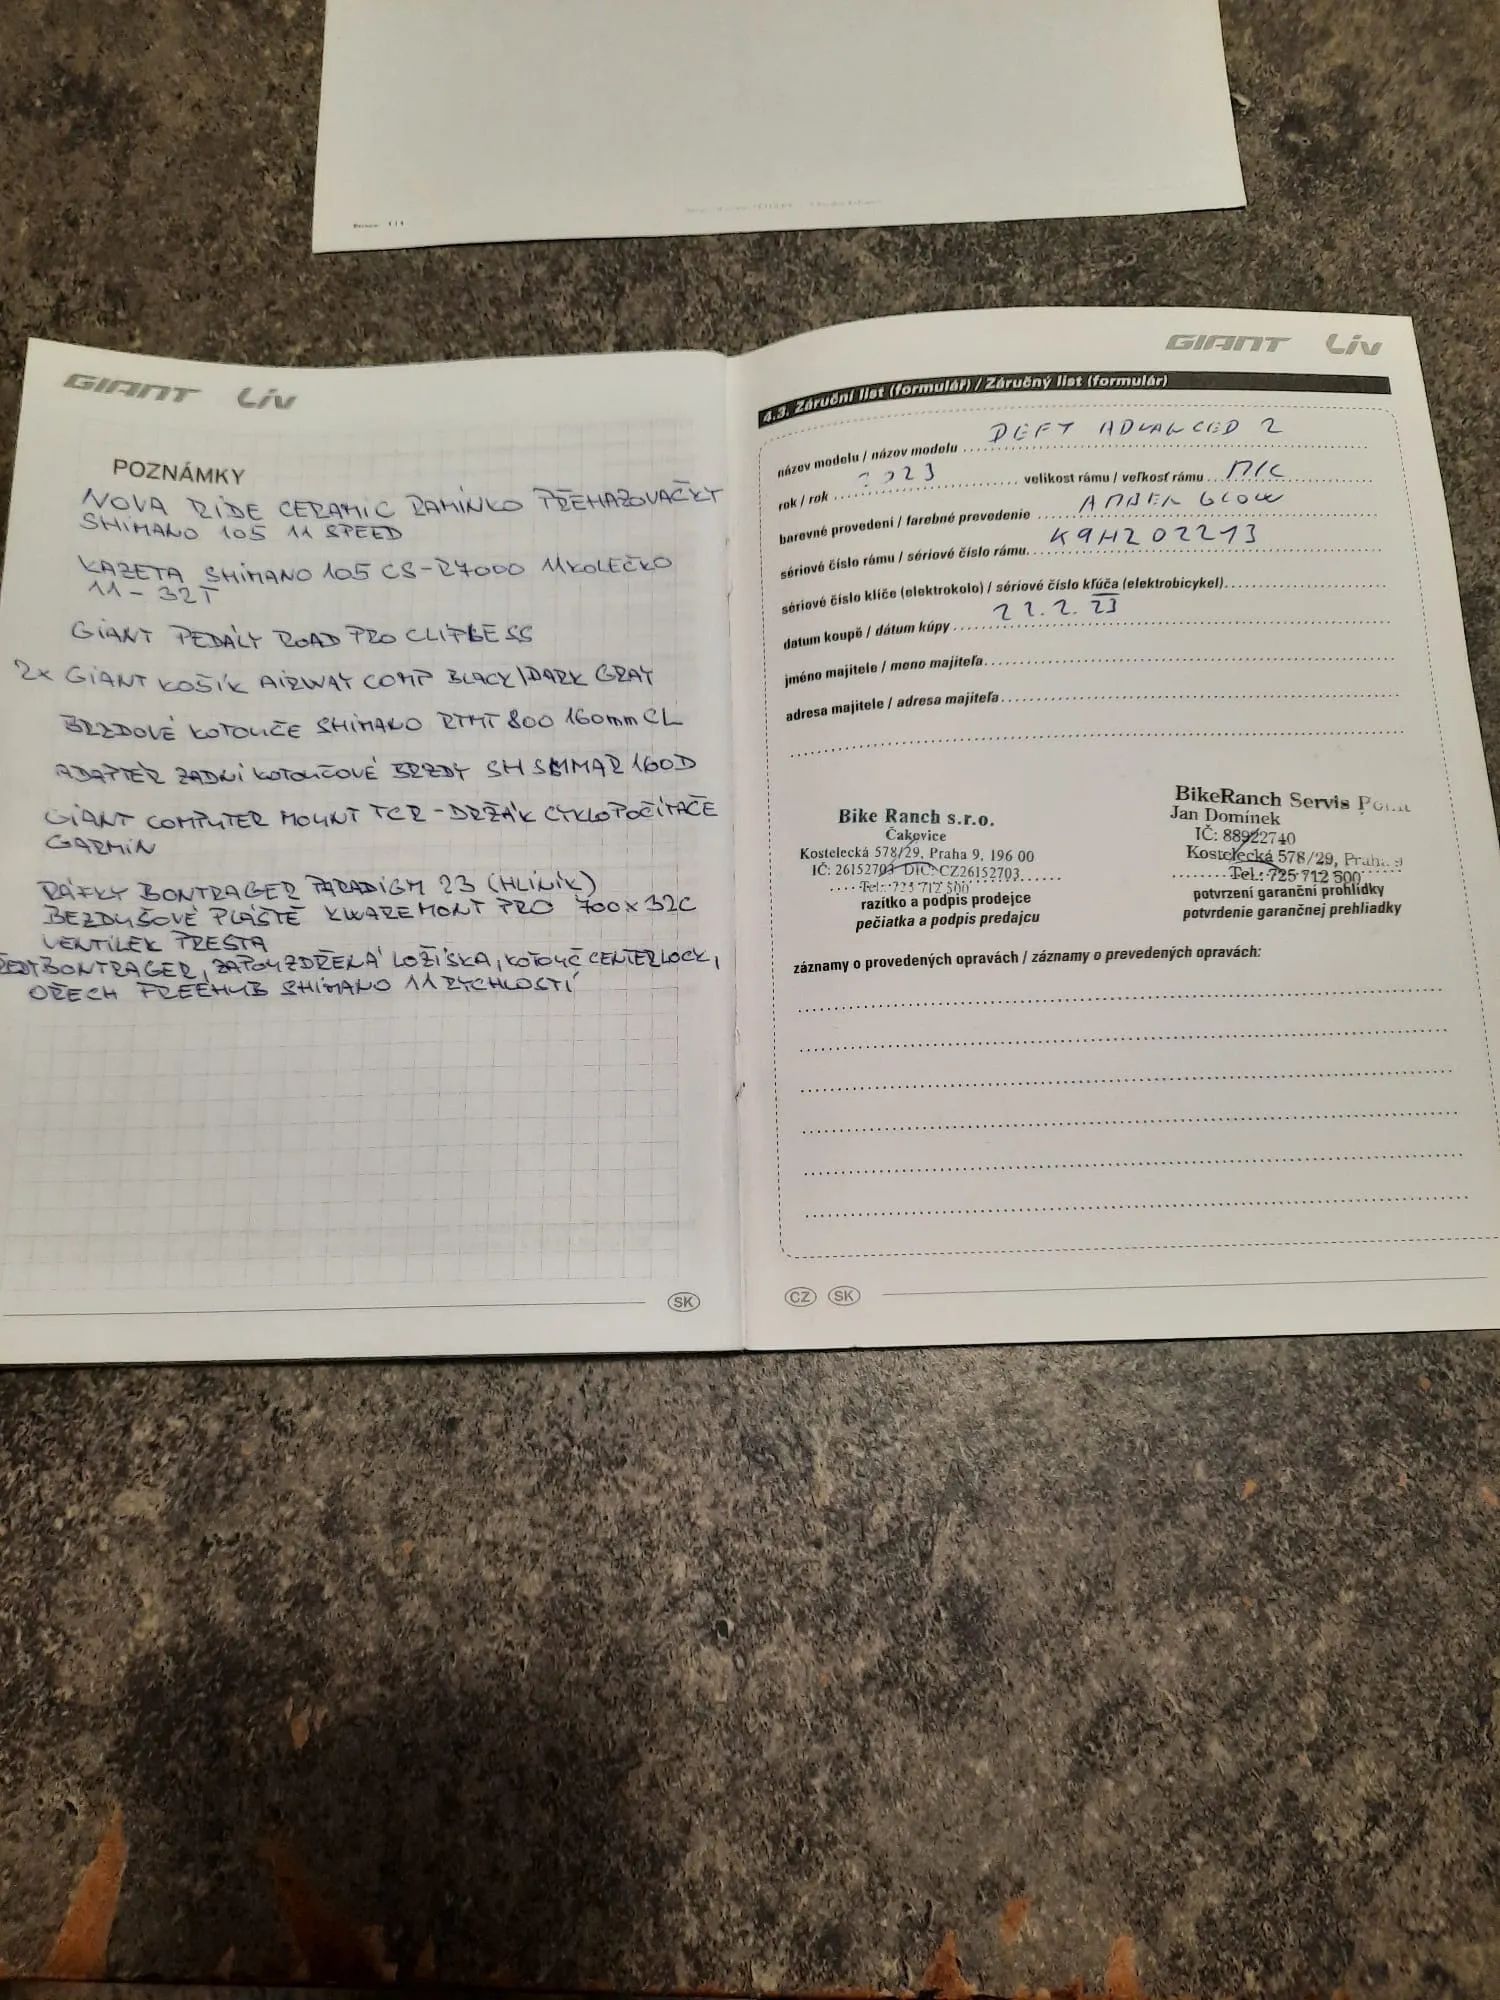 GIANT Liv
POZNÁMKY
NOVA RIDE CERAMIC RAMÍNKO PŘEHAZOVAČKY
SHIMANO 105 11 SPEED
KAZETA SHIMANO 105 CS-R7000 11KOLEČKO
11-32T
GIANT PEDÁLY ROAD PRO CLIPLESS
2x GIANT KOŠÍK AIRWAY COMP BLACK/DARK GRAY
BRZDOVÉ KOTOUČE SHIMANO RTMT 800 160mm CL
ADAPTÉR ZADNÍ KOTOUČOVÉ BRZDY SH SMMAR 160D
GIANT COMPUTER MOUNT TCR - DRŽÁK CYKLOPOČÍTAČE
GARMIN
RÁFKY BONTRAGER PARADIGM 23 (HLINÍK)
BEZDUŠOVÉ PLÁŠTĚ KWAREMONT PRO 700x32C
VENTILEK PRESTA
BONTRAGER, ZAPOUZDŘENÁ LOŽISKA, KOTOUČ CENTERLOCK,
OŘECH FREEHUB SHIMANO 11 RYCHLOSTÍ
SK
GIANT Liv
4.3. Záruční list (formulář) / Záručný list (formulár)
název modelu / názov modelu DEFY ADVANCED 2
rok / rok 2023 velikost rámu / veľkosť rámu M/L
barevné provedení / farebné prevedenie AMBER GLOW
sériové číslo rámu / sériové číslo rámu. K9HZ02213
sériové číslo klíče (elektrokolo) / sériové číslo kľúča (elektrobicykel)
datum koupě / dátum kúpy 22.2.23
jméno majitele / meno majiteľa
adresa majitele / adresa majiteľa
Bike Ranch s.r.o.
Čakovice
Kostelecká 578/29, Praha 9, 196 00
IČ: 26152703 DIČ: CZ26152703
Tel.: 725 712 500
razítko a podpis prodejce
pečiatka a podpis predajcu
BikeRanch Servis Point
Jan Domínek
IČ: 88922740
Kostelecká 578/29, Praha 9
Tel.: 725 712 500
potvrzení garanční prohlídky
potvrdenie garančnej prehliadky
záznamy o provedených opravách / záznamy o prevedených opravách:
CZ SK